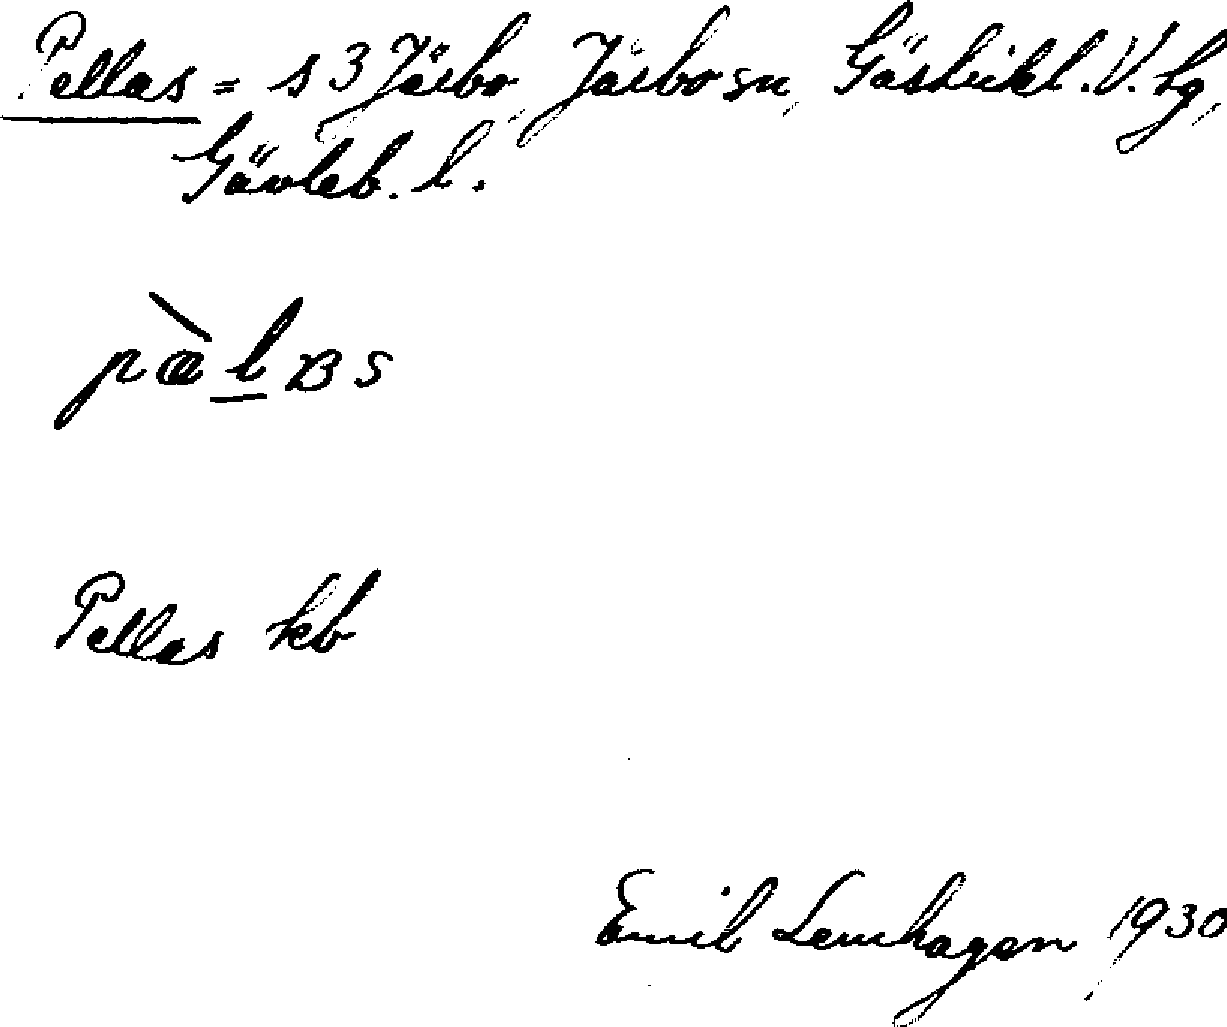 Pellas = s 3 Järbo, Järbo sn, Gästrikl. V. tg,
Gävleb. l.
Pellas kb
Emil Lemhagen, 1930